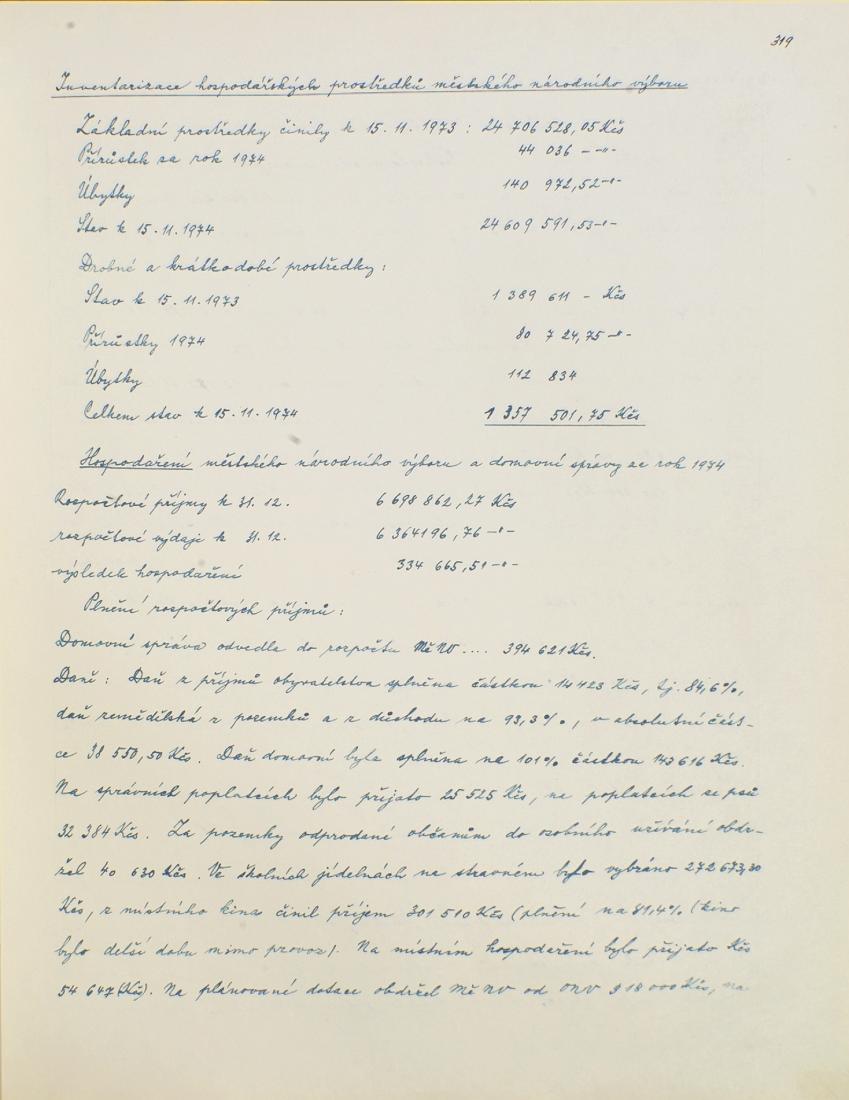 319
Inventarizace hospodářských prostředků městského národního výboru
Základní prostředky činily k 15.11.1973 : 24 706 528,05 Kčs
Přírůstek za rok 1974 44 036 - -"-
Úbytky 140 972,52 -"-
Stav k 15.11.1974 24 609 591,53 -"-
Drobné a krátkodobé prostředky :
Stav k 15.11.1973 1 389 611 - Kčs
Přírůstky 1974 80 724,75 -"-
Úbytky 112 834
Celkem stav k 15.11.1974 1 357 501,75 Kčs
Hospodaření městského národního výboru a domovní správy za rok 1974
Rozpočtové příjmy k 31.12. 6 698 862,27 Kčs
rozpočtové výdaje k 31.12. 6 364196,76 -"-
výsledek hospodaření 334 665,51 -"-
Plnění rozpočtových příjmů :
Domovní správa odvedla do rozpočtu MěNV .... 394 621 Kčs.
Daně : Daň z příjmů obyvatelstva splněna částkou 14 423 Kčs, tj. 84,6%,
daň zemědělská z pozemků a z důchodu na 93,3%, v absolutní část-
ce 38 550,50 Kčs. Daň domovní byla splněna na 101% částkou 143 616 Kčs.
Na správních poplatcích bylo přijato 25 525 Kčs, na poplatcích ze psů
32 384 Kčs. Za pozemky odprodané občanům do osobního užívání obdr-
žel 40 630 Kčs. Ve školních jídelnách na stravném bylo vybráno 272 673,30
Kčs, z místního kina činil příjem 301 510 Kčs (plnění na 81,4% (kino
bylo delší dobu mimo provoz). Na místním hospodaření bylo přijato Kčs
54 647 (Kčs). Na plánované dotace obdržel MěNV od ONV 918 000 Kčs, na